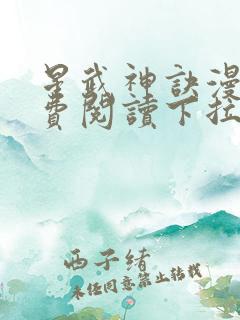 星武神訣漫
費閱讀下拉
西子緒
未經同意禁止轉載